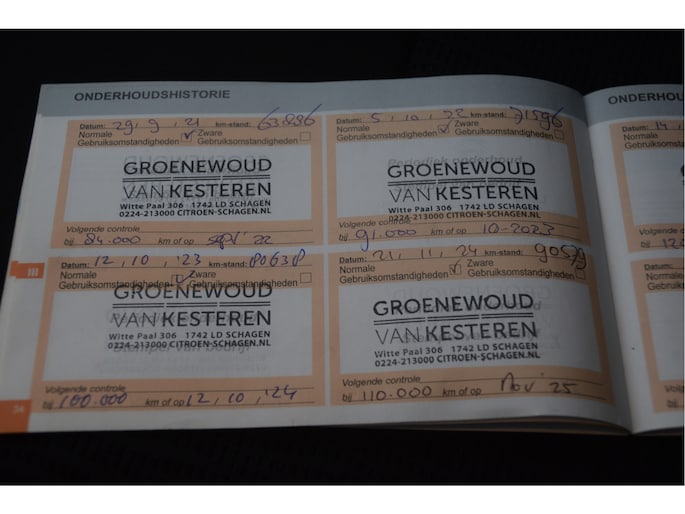 ONDERHOUDSHISTORIE
Datum: 29, 9, 21 km-stand: 63.886
Normale Gebruiksomstandigheden Zware Gebruiksomstandigheden
GROENEWOUD
VAN KESTEREN
Witte Paal 306 1742 LD SCHAGEN
0224-213000 CITROEN-SCHAGEN.NL
Volgende controle
bij 84.000 km of op sept '22
Datum: 5, 10, 22 km-stand: 71596
Normale Gebruiksomstandigheden Zware Gebruiksomstandigheden
Periodiek onderhoud
GROENEWOUD
VAN KESTEREN
Witte Paal 306 1742 LD SCHAGEN
0224-213000 CITROEN-SCHAGEN.NL
Volgende controle
bij 91.000 km of op 10-2023
Datum: 12, 10, '23 km-stand: 80638
Normale Gebruiksomstandigheden Zware Gebruiksomstandigheden
GROENEWOUD
VAN KESTEREN
Witte Paal 306 1742 LD SCHAGEN
0224-213000 CITROEN-SCHAGEN.NL
Stempel van bedrijf
Volgende controle
bij 100.000 km of op 12, 10, '24
Datum: 21, 11, 24 km-stand: 90579
Normale Gebruiksomstandigheden Zware Gebruiksomstandigheden
GROENEWOUD
VAN KESTEREN
Witte Paal 306 1742 LD SCHAGEN
0224-213000 CITROEN-SCHAGEN.NL
Volgende controle
bij 110.000 km of op Nov '25
34
III
ONDERHOU
Datum: 14,
Normale
Gebruikso
Volgende
bij 120
Datum:
Normale
Gebruikso
Volgende
bij